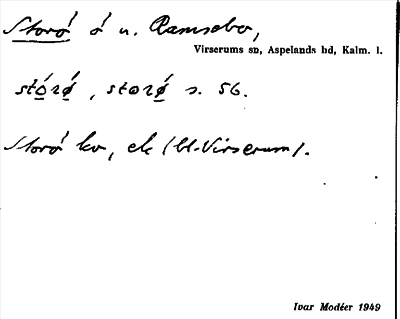 Storå å n. Ramsebo,
Virserums sn, Aspelands hd, Kalm. l.
stórǿ, storǿ s. 56.
Storå kv, ek (bl. Virserum).
Ivar Modéer 1949